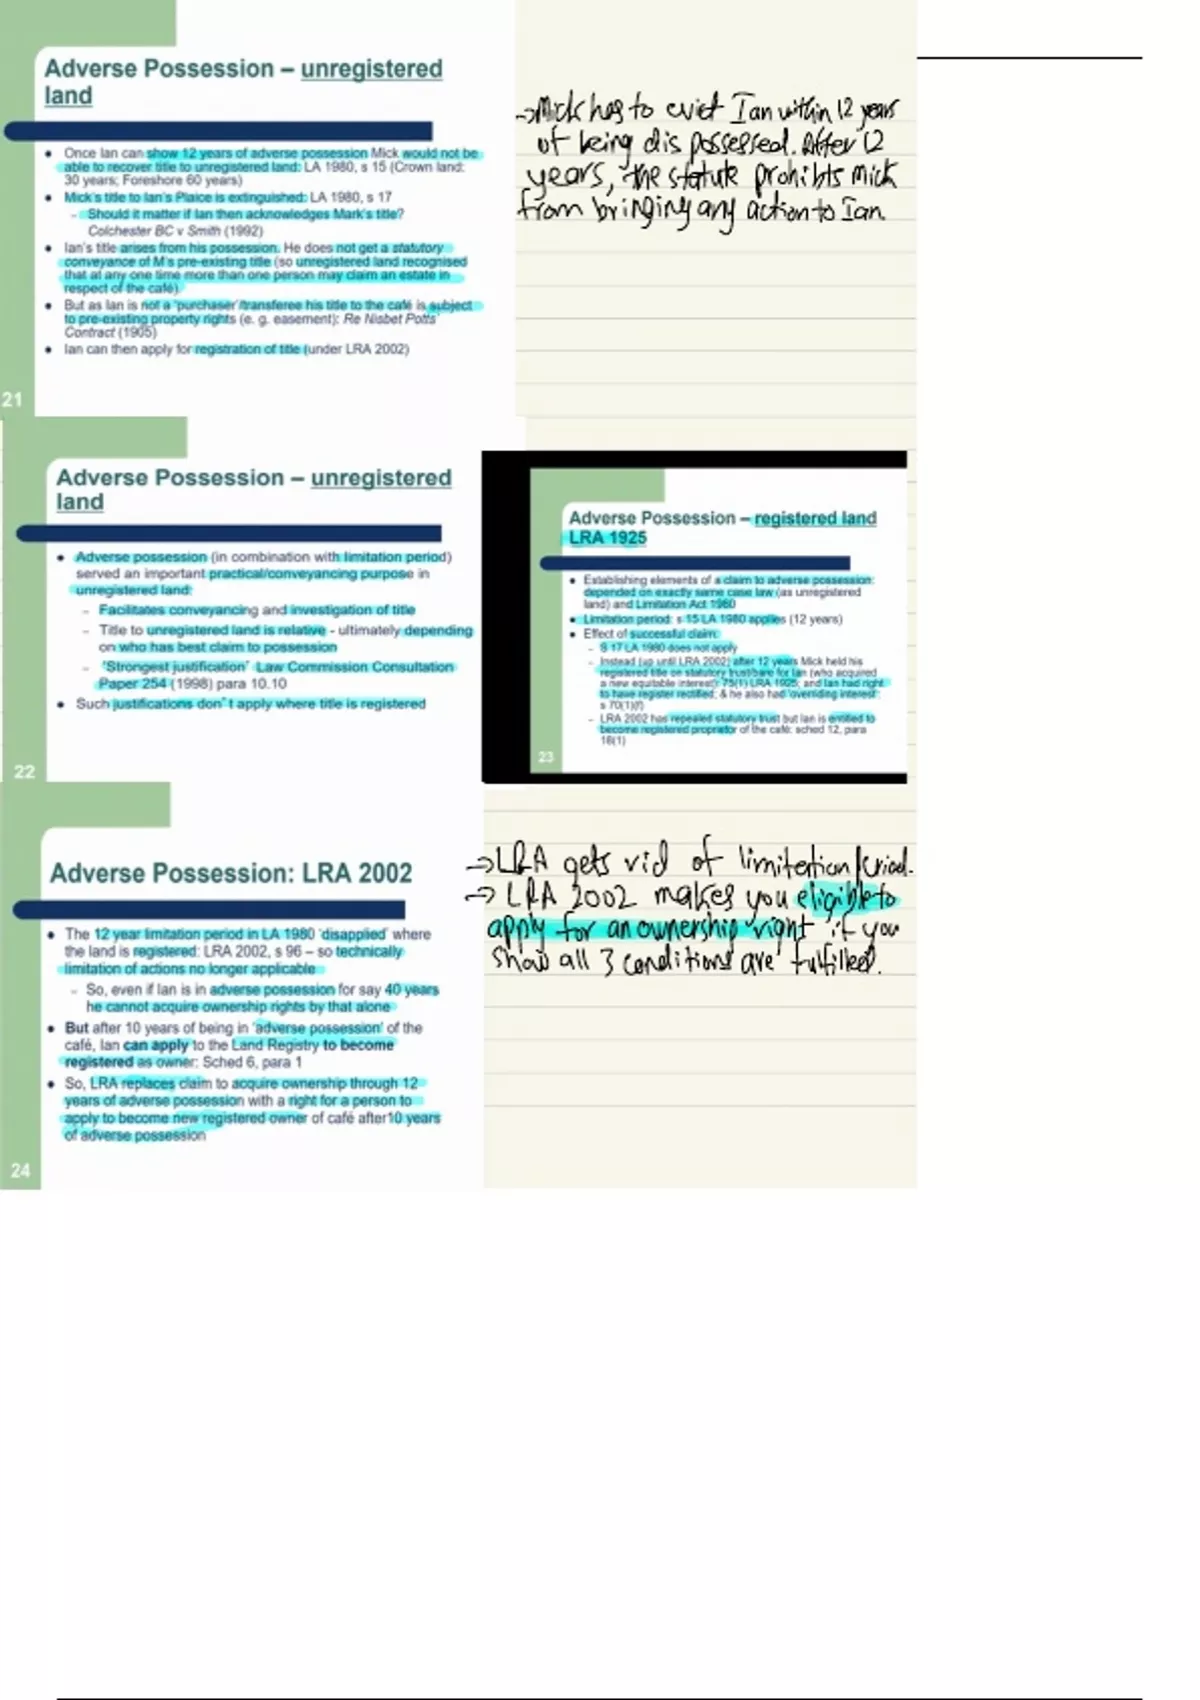 Adverse Possession – unregistered
land
• Once Ian can show 12 years of adverse possession Mick would not be
able to recover title to unregistered land: LA 1980, s 15 (Crown land:
30 years; Foreshore 60 years)
• Mick's title to Ian's Plaice is extinguished: LA 1980, s 17
- Should it matter if Ian then acknowledges Mark's title?
Colchester BC v Smith (1992)
• Ian's title arises from his possession. He does not get a statutory
conveyance of M's pre-existing title (so unregistered land recognised
that at any one time more than one person may claim an estate in
respect of the café)
• But as Ian is not a 'purchaser'/transferee his title to the café is subject
to pre-existing property rights (e. g. easement): Re Nisbet Potts'
Contract (1905)
• Ian can then apply for registration of title (under LRA 2002)
21
→Mick has to evict Ian within 12 years
of being dispossessed. After 12
years, the statute prohibits Mick
from bringing any action to Ian.
Adverse Possession – unregistered
land
• Adverse possession (in combination with limitation period)
served an important practical/conveyancing purpose in
unregistered land:
- Facilitates conveyancing and investigation of title
- Title to unregistered land is relative - ultimately depending
on who has best claim to possession
- 'Strongest justification' Law Commission Consultation
Paper 254 (1998) para 10.10
• Such justifications don't apply where title is registered
22
Adverse Possession – registered land
LRA 1925
• Establishing elements of a claim to adverse possession:
depended on exactly same case law (as unregistered
land) and Limitation Act 1980
• Limitation period: s 15 LA 1980 applies (12 years)
• Effect of successful claim:
- S 17 LA 1980 does not apply
- Instead (up until LRA 2002) after 12 years Mick held his
registered title on statutory trust/bare for Ian (who acquired
a new equitable interest): 75(1) LRA 1925; and Ian had right
to have register rectified; & he also had 'overriding interest':
s 70(1)(f)
- LRA 2002 has repealed statutory trust but Ian is entitled to
become registered proprietor of the café: sched 12, para
18(1)
23
Adverse Possession: LRA 2002
• The 12 year limitation period in LA 1980 'disapplied' where
the land is registered: LRA 2002, s 96 – so technically
limitation of actions no longer applicable
- So, even if Ian is in adverse possession for say 40 years
he cannot acquire ownership rights by that alone
• But after 10 years of being in 'adverse possession' of the
café, Ian can apply to the Land Registry to become
registered as owner: Sched 6, para 1
• So, LRA replaces claim to acquire ownership through 12
years of adverse possession with a right for a person to
apply to become new registered owner of café after10 years
of adverse possession
24
→LRA gets rid of limitation period.
→ LRA 2002 makes you eligible to
apply for an ownership right if you
show all 3 conditions are fulfilled.